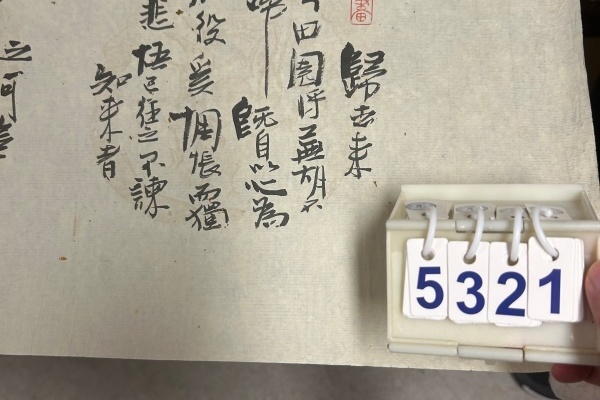 歸去来
田園将蕪胡不
歸既自以心為
役奚惆悵而獨
悲悟已往之不諫
知来者
之可
5321